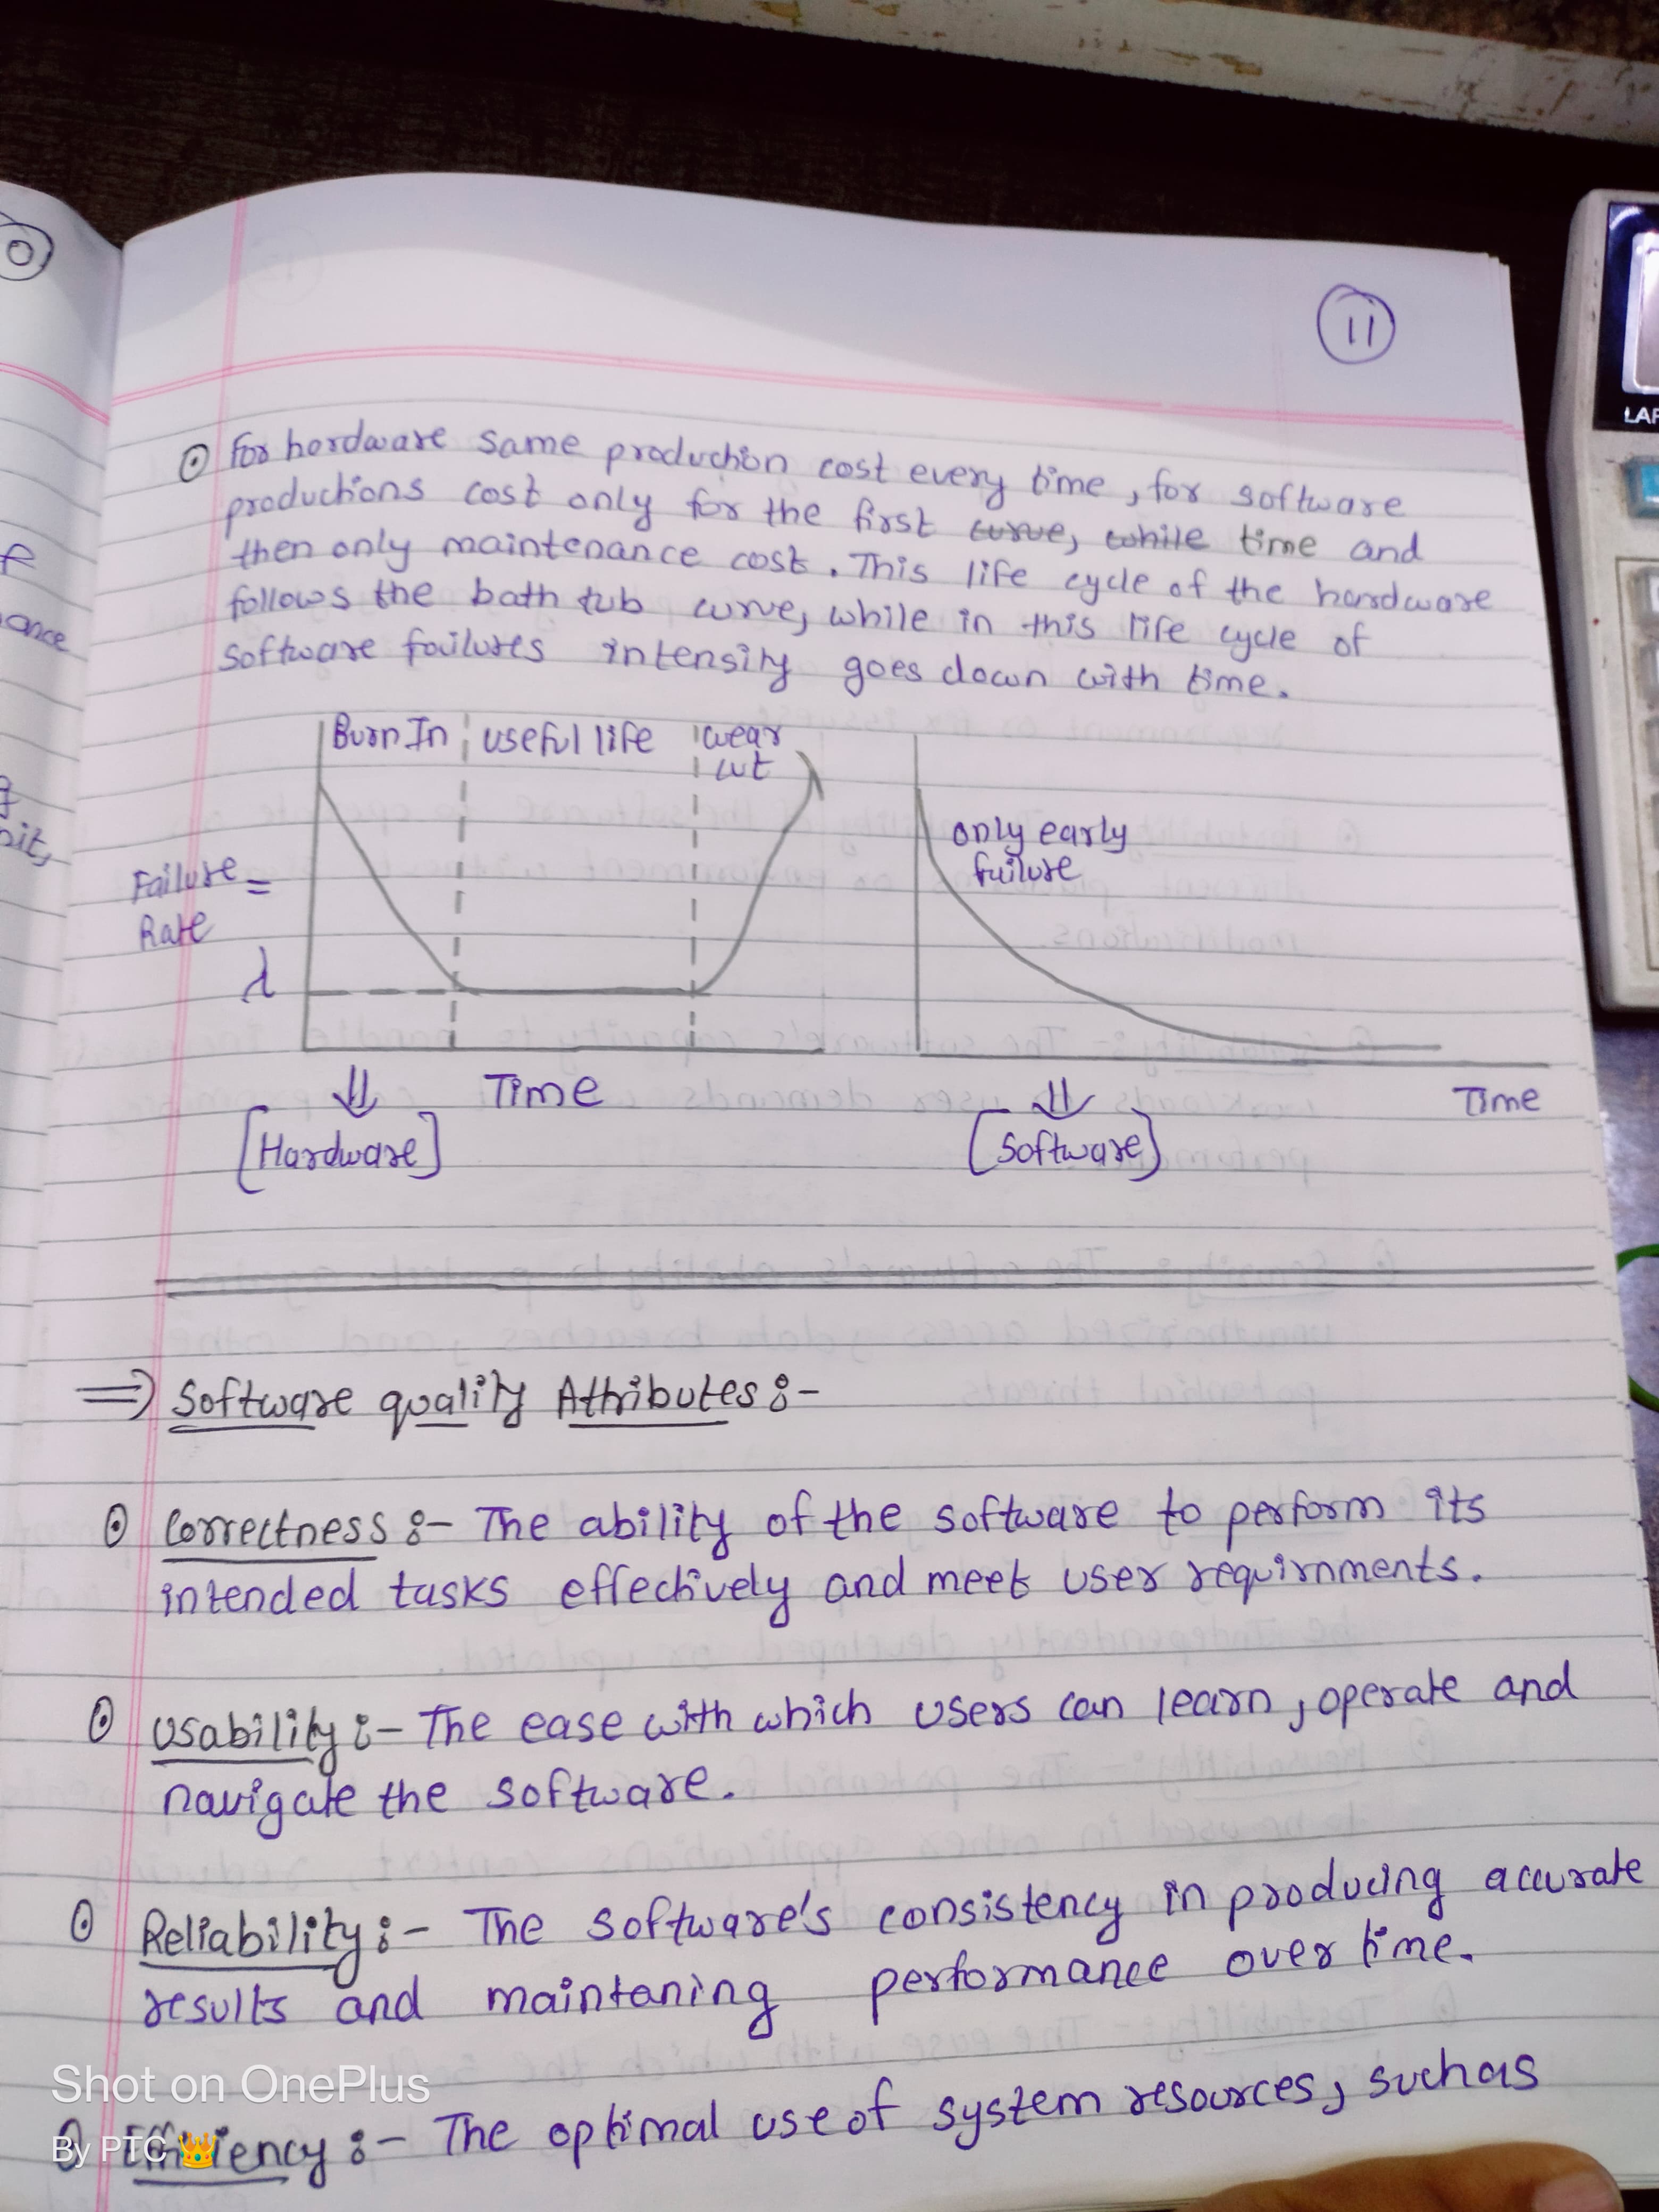 11
For hardware same production cost every time, for software
productions cost only for the first curve, while time and
then only maintenance cost. This life cycle of the hardware
follows the bath tub curve, while in this life cycle of
software failures intensity goes down with time.
Burn In useful life wear
out
only early
failure
Failure =
Rate
λ
Time
Time
[Hardware]
[Software]
=> Software quality Attributes :-
Correctness :- The ability of the software to perform its
intended tasks effectively and meet user requirnments.
Usability :- The ease with which users can learn, operate and
navigate the software.
Reliability :- The software's consistency in producing accurate
results and maintaning performance over time.
Efficiency :- The optimal use of system resources, such as
Shot on OnePlus
By PTC 👑
LAP
ance